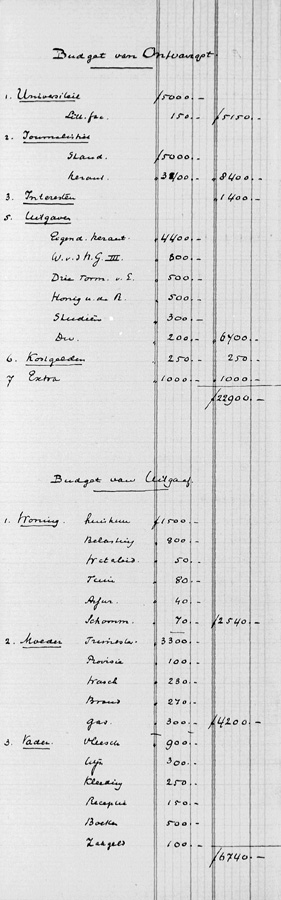 Budget van Ontvangst.
1. Universiteit ƒ5000.-
Litt. fac. 150.- ƒ5150.-
2. Journalistiek
Stand. ƒ5000.-
Heraut. 3400.- 8400.-
3. Interesten 1400.-
5. Uitgaven
Eigend. Heraut. 4400.-
W. v. d H. G. III. 800.-
Drie Form. v. E. 500.-
Honig u. de R. 500.-
Studiën 300.-
Div. 200.- 6700.-
6. Kostgelden 250.- 250.-
7 Extra 1000.- 1000.-
ƒ22900.-
Budget van Uitgaaf.
1. Woning. huishuur ƒ1500.-
Belasting 800.-
50.-
Tuin 80.-
40.-
Schoonm. 70.- ƒ2540.-
2. Moeder 3300.-
Provisie 100.-
Wasch 230.-
Brand 270.-
gas. 300.- ƒ4200.-
3. Vader. Vleesch 900.-
Wijn 300.-
Kleeding 250.-
Receptie 150.-
Boeken 500.-
Zakgeld 100.-
ƒ6740.-